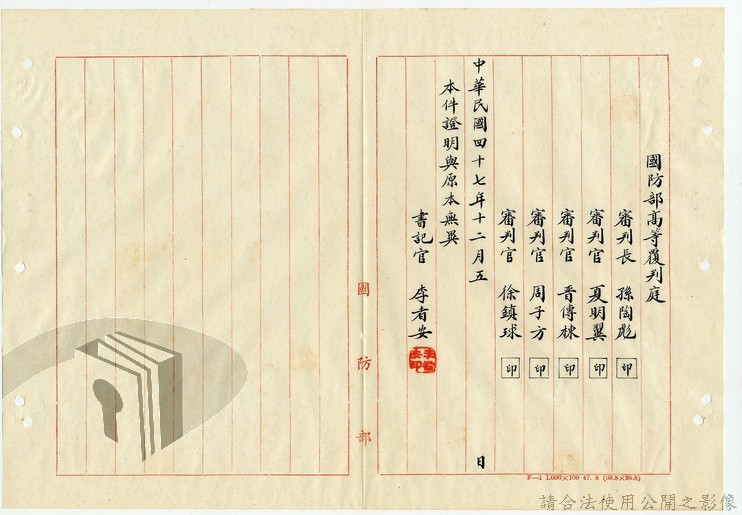 國防部高等覆判庭
審判長 孫陶彪 印
審判官 夏明翼 印
審判官 晋傳棟 印
審判官 周子方 印
審判官 徐鎮球 印
中華民國四十七年十二月五日
本件證明與原本無異
書記官 李者安
國防部
F—1 1.000×100 47. 8 (38.8×26.8)
請合法使用公開之影像